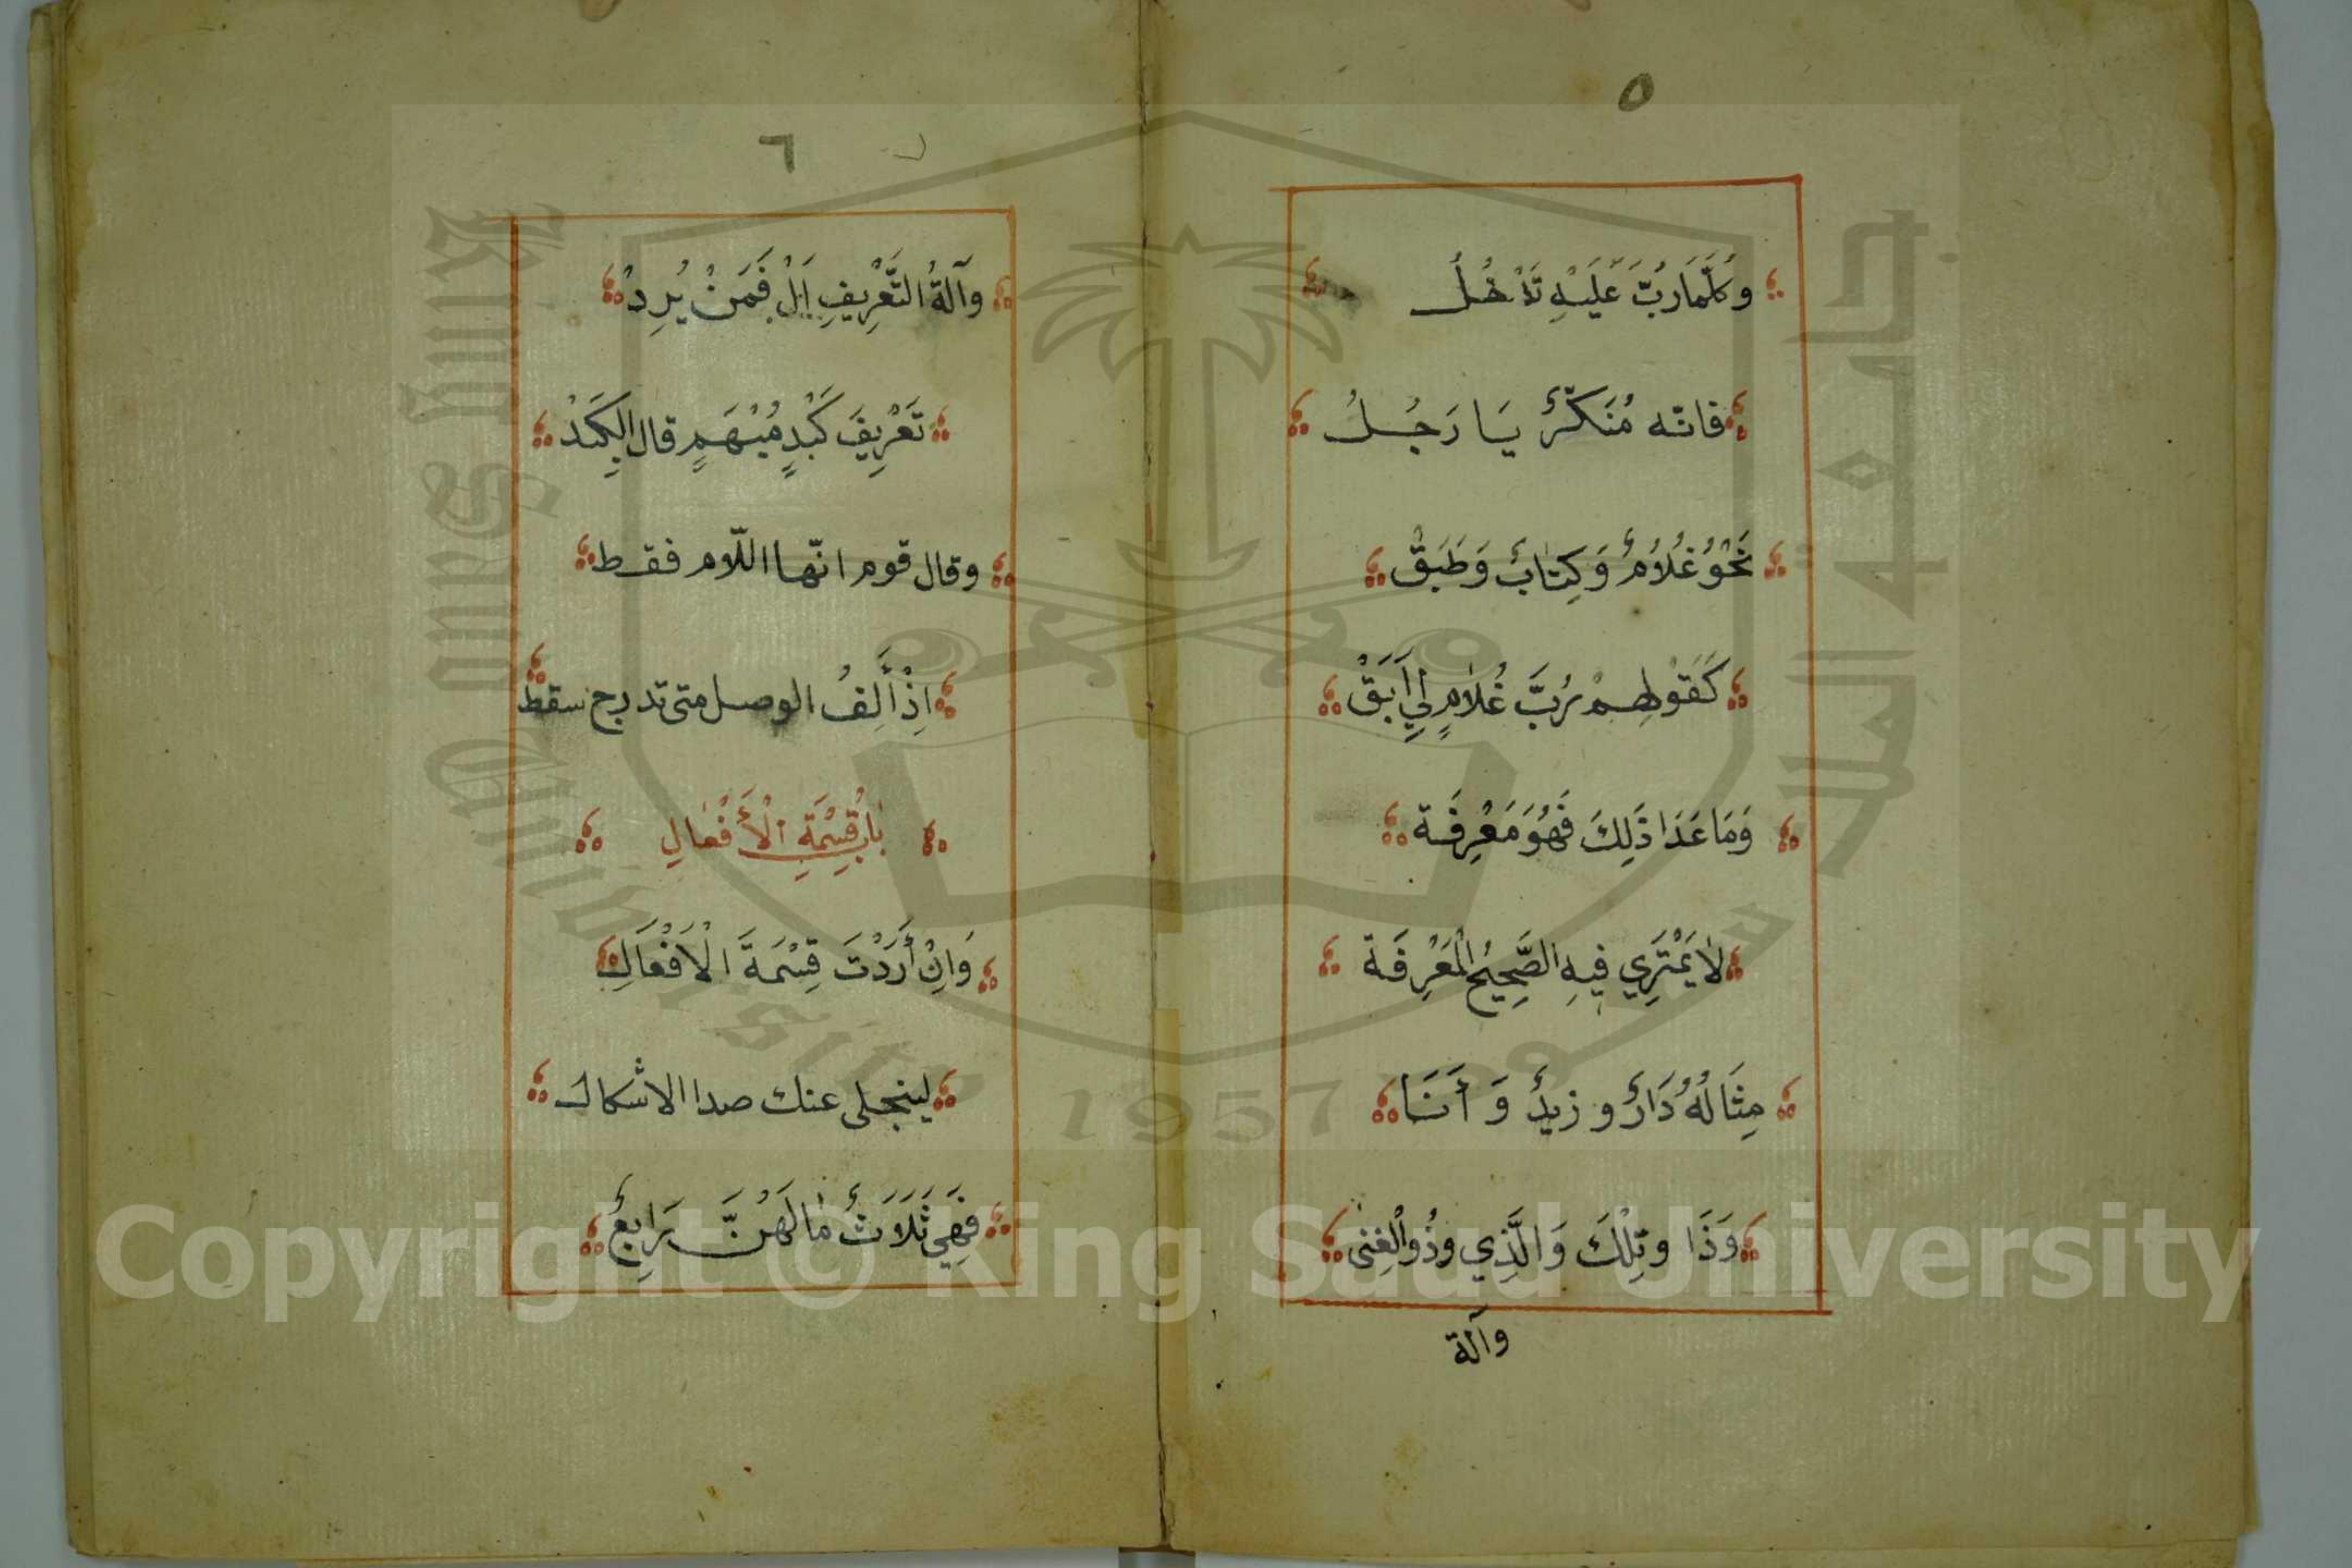 ٥
وَكُلَّمَا رُبَّ عَلَيْهِ تَدْخُلُ
فانّه مُنَكَّرٌ يَا رَجُلُ
نَحْوُ غُلَامٌ وَكِتَابٌ وَطَبَقْ
كَقَوْلِهِمْ رُبَّ غُلَامٍ لِي أَبَقْ
وَمَا عَدَا ذَلِكَ فَهُوَ مَعْرِفَة
لَا يَمْتَرِي فِيهِ الصَّحِيحُ الْمَعْرِفَة
مِثَالُهُ دَارٌ وزيدٌ وَأَنَا
وَذَا وتِلْكَ وَالَّذِي وذُو الْغِنىٰ
وآلة
٦
وآلَةُ التَّعْرِيفِ اَلْ فَمَنْ يُرِدْ
تَعْرِيفَ كَبْدٍ مُبْهَمٍ قال الكَبِدْ
وقال قوم انّها اللّام فقط
اِذْ أَلِفُ الوصل متى تدرج سقط
بابُ قِسْمَةِ الْأَفْعَالِ
وَاِنْ أَرَدْتَ قِسْمَةَ الْاَفْعَالِ
لينجلى عنك صدا الاشكال
فَهِيَ ثَلَاثٌ مَا لَهُنَّ رَابِعٌ
Copyright © King Saud University
King Saud University
جامعة الملك سعود
1957